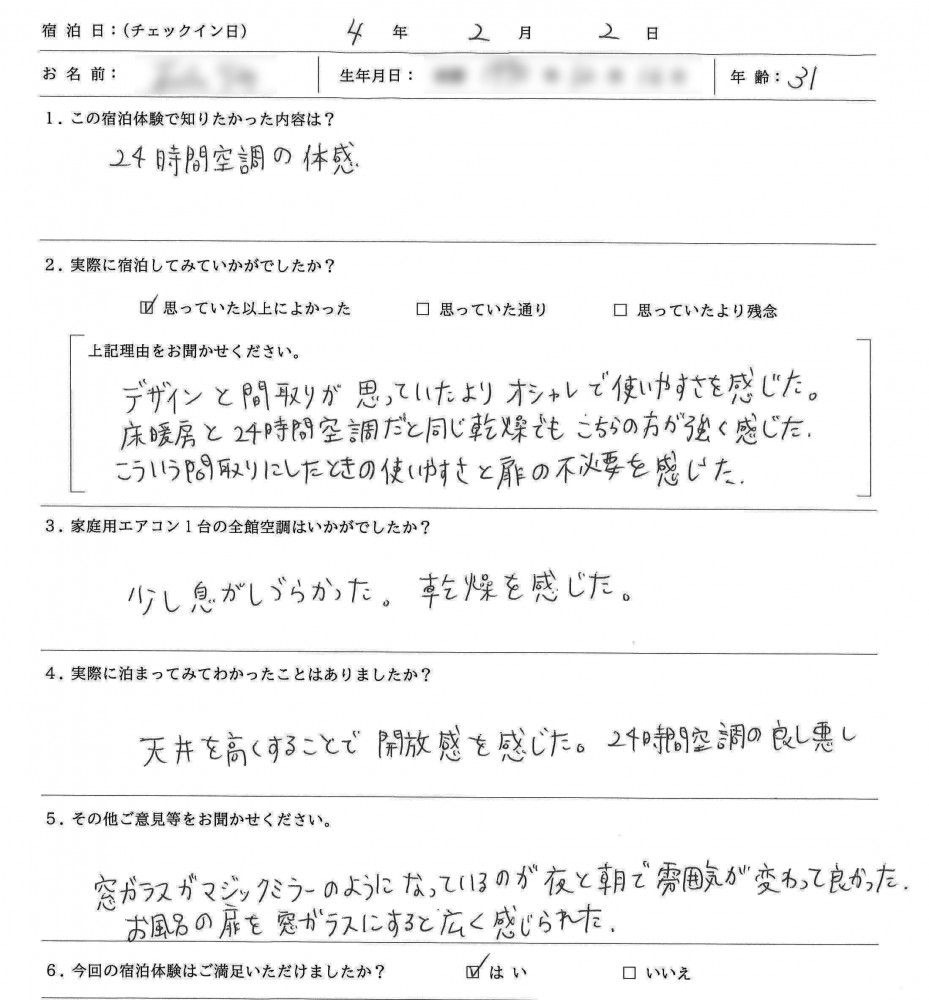 宿泊日：(チェックイン日) 4年 2月 2日
お名前： 生年月日： 年齢：31
1．この宿泊体験で知りたかった内容は？
24時間空調の体感.
2．実際に宿泊してみていかがでしたか？
☑ 思っていた以上によかった □ 思っていた通り □ 思っていたより残念
上記理由をお聞かせください。
デザインと間取りが思っていたよりオシャレで使いやすさを感じた。
床暖房と24時間空調だと同じ乾燥でもこちらの方が強く感じた.
こういう間取りにしたときの使いやすさと扉の不必要を感じた.
3．家庭用エアコン1台の全館空調はいかがでしたか？
少し息がしづらかった。乾燥を感じた。
4．実際に泊まってみてわかったことはありましたか？
天井を高くすることで開放感を感じた。24時間空調の良し悪し
5．その他ご意見等をお聞かせください。
窓ガラスがマジックミラーのようになっているのが夜と朝で雰囲気が変わって良かった.
お風呂の扉を窓ガラスにすると広く感じられた.
6．今回の宿泊体験はご満足いただけましたか？ ☑ はい □ いいえ